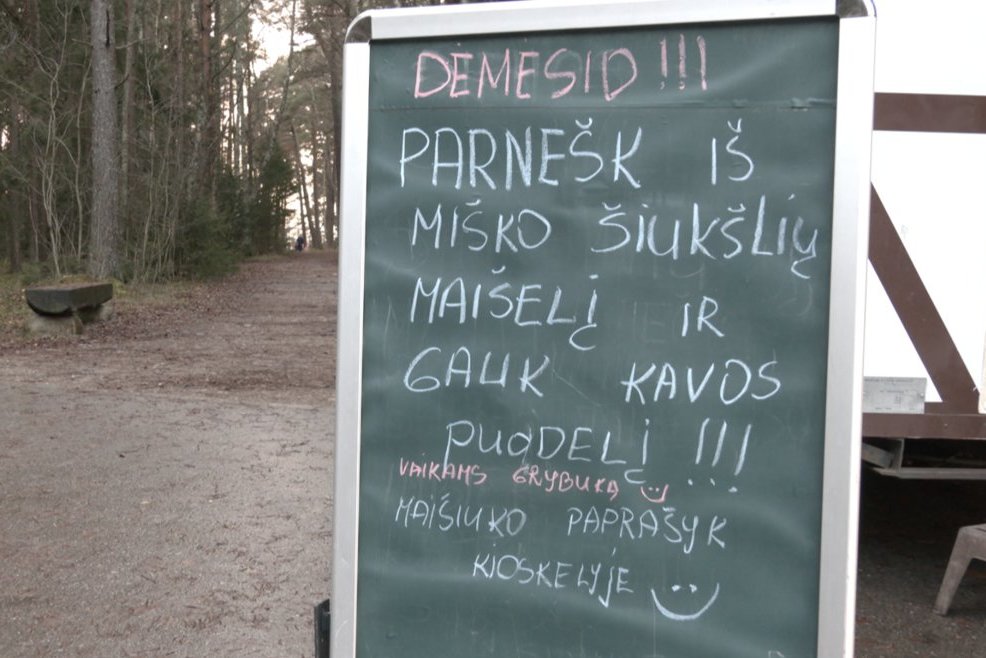 DĖMESIO!!!
PARNEŠK IŠ
MIŠKO ŠIUKŠLIŲ
MAIŠELĮ IR
GAUK KAVOS
PUODELĮ!!!
VAIKAMS GRYBUKĄ
MAIŠIUKO PAPRAŠYK
KIOSKELYJE